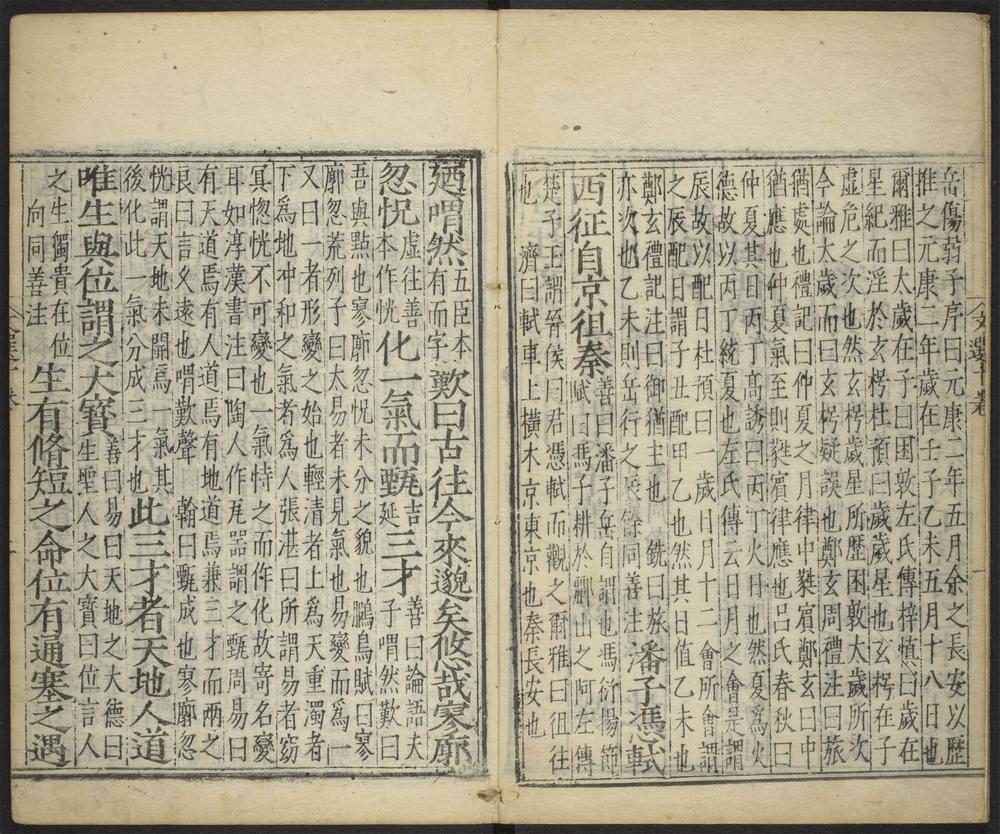 岳傷弱子序曰元康二年五月余之長安以歷
推之元康二年歲在壬子乙未五月十八日也
爾雅曰太歲在子曰困敦左氏傳梓慎曰歲在
星紀而淫於玄枵杜預曰歲歲星也玄枵在子
虛危之次也然玄枵歲星所歷困敦大歲所次
今論太歲而曰玄枵疑誤也鄭玄周禮注曰旅
猶處也禮記曰仲夏之月律中蕤賓鄭玄曰中
猶應也仲夏氣至則蕤賓律應也呂氏春秋曰
仲夏其日丙丁高誘曰丙丁火日也然夏為火
德故以丙丁統夏也左氏傳云日月之會是謂
辰故以配日杜預曰一歲日月十二會所會謂
之辰配日謂子丑配甲乙也然其日值乙未也
鄭玄禮記注曰御猶主也 銑曰旅
亦次也乙未則岳行之辰餘同善注
潘子憑軾
西征自京徂秦
善曰潘子岳自謂也馮衍揚節
賦曰馮子耕於驪山之阿左傳
楚子玉謂晉侯曰君憑軾而觀之爾雅曰徂往
也 濟曰軾車上橫木京東京也秦長安也
文選十卷
一
廼喟然
五臣本
有而字
歎曰古往今來邈矣悠哉寥廓
忽怳
虛往善
本作恍
化一氣而甄
吉
延
三才
善曰論語夫
子喟然歎曰
吾與點也寥廓忽怳未分之貌也鵩鳥賦曰寥
廓忽荒列子曰太易者未見氣也易變而為一
又曰一者形變之始也輕清者上為天重濁者
下為地沖和之氣者為人張湛曰所謂易者窈
冥惚恍不可變也一氣恃之而作化故寄名變
耳如淳漢書注曰陶人作瓦器謂之甄周易曰
有天道焉有人道焉有地道焉兼三才而兩之
良曰言久遠也喟歎聲 翰曰甄成也寥廓忽
恍謂天地未開焉一氣其
後化此一氣分成三才也
此三才者天地人道
唯生與位謂之大寶
善曰易曰天地之大德曰
生聖人之大寶曰位言人
之生獨貴在位
向同善注
生有脩短之命位有通塞之遇